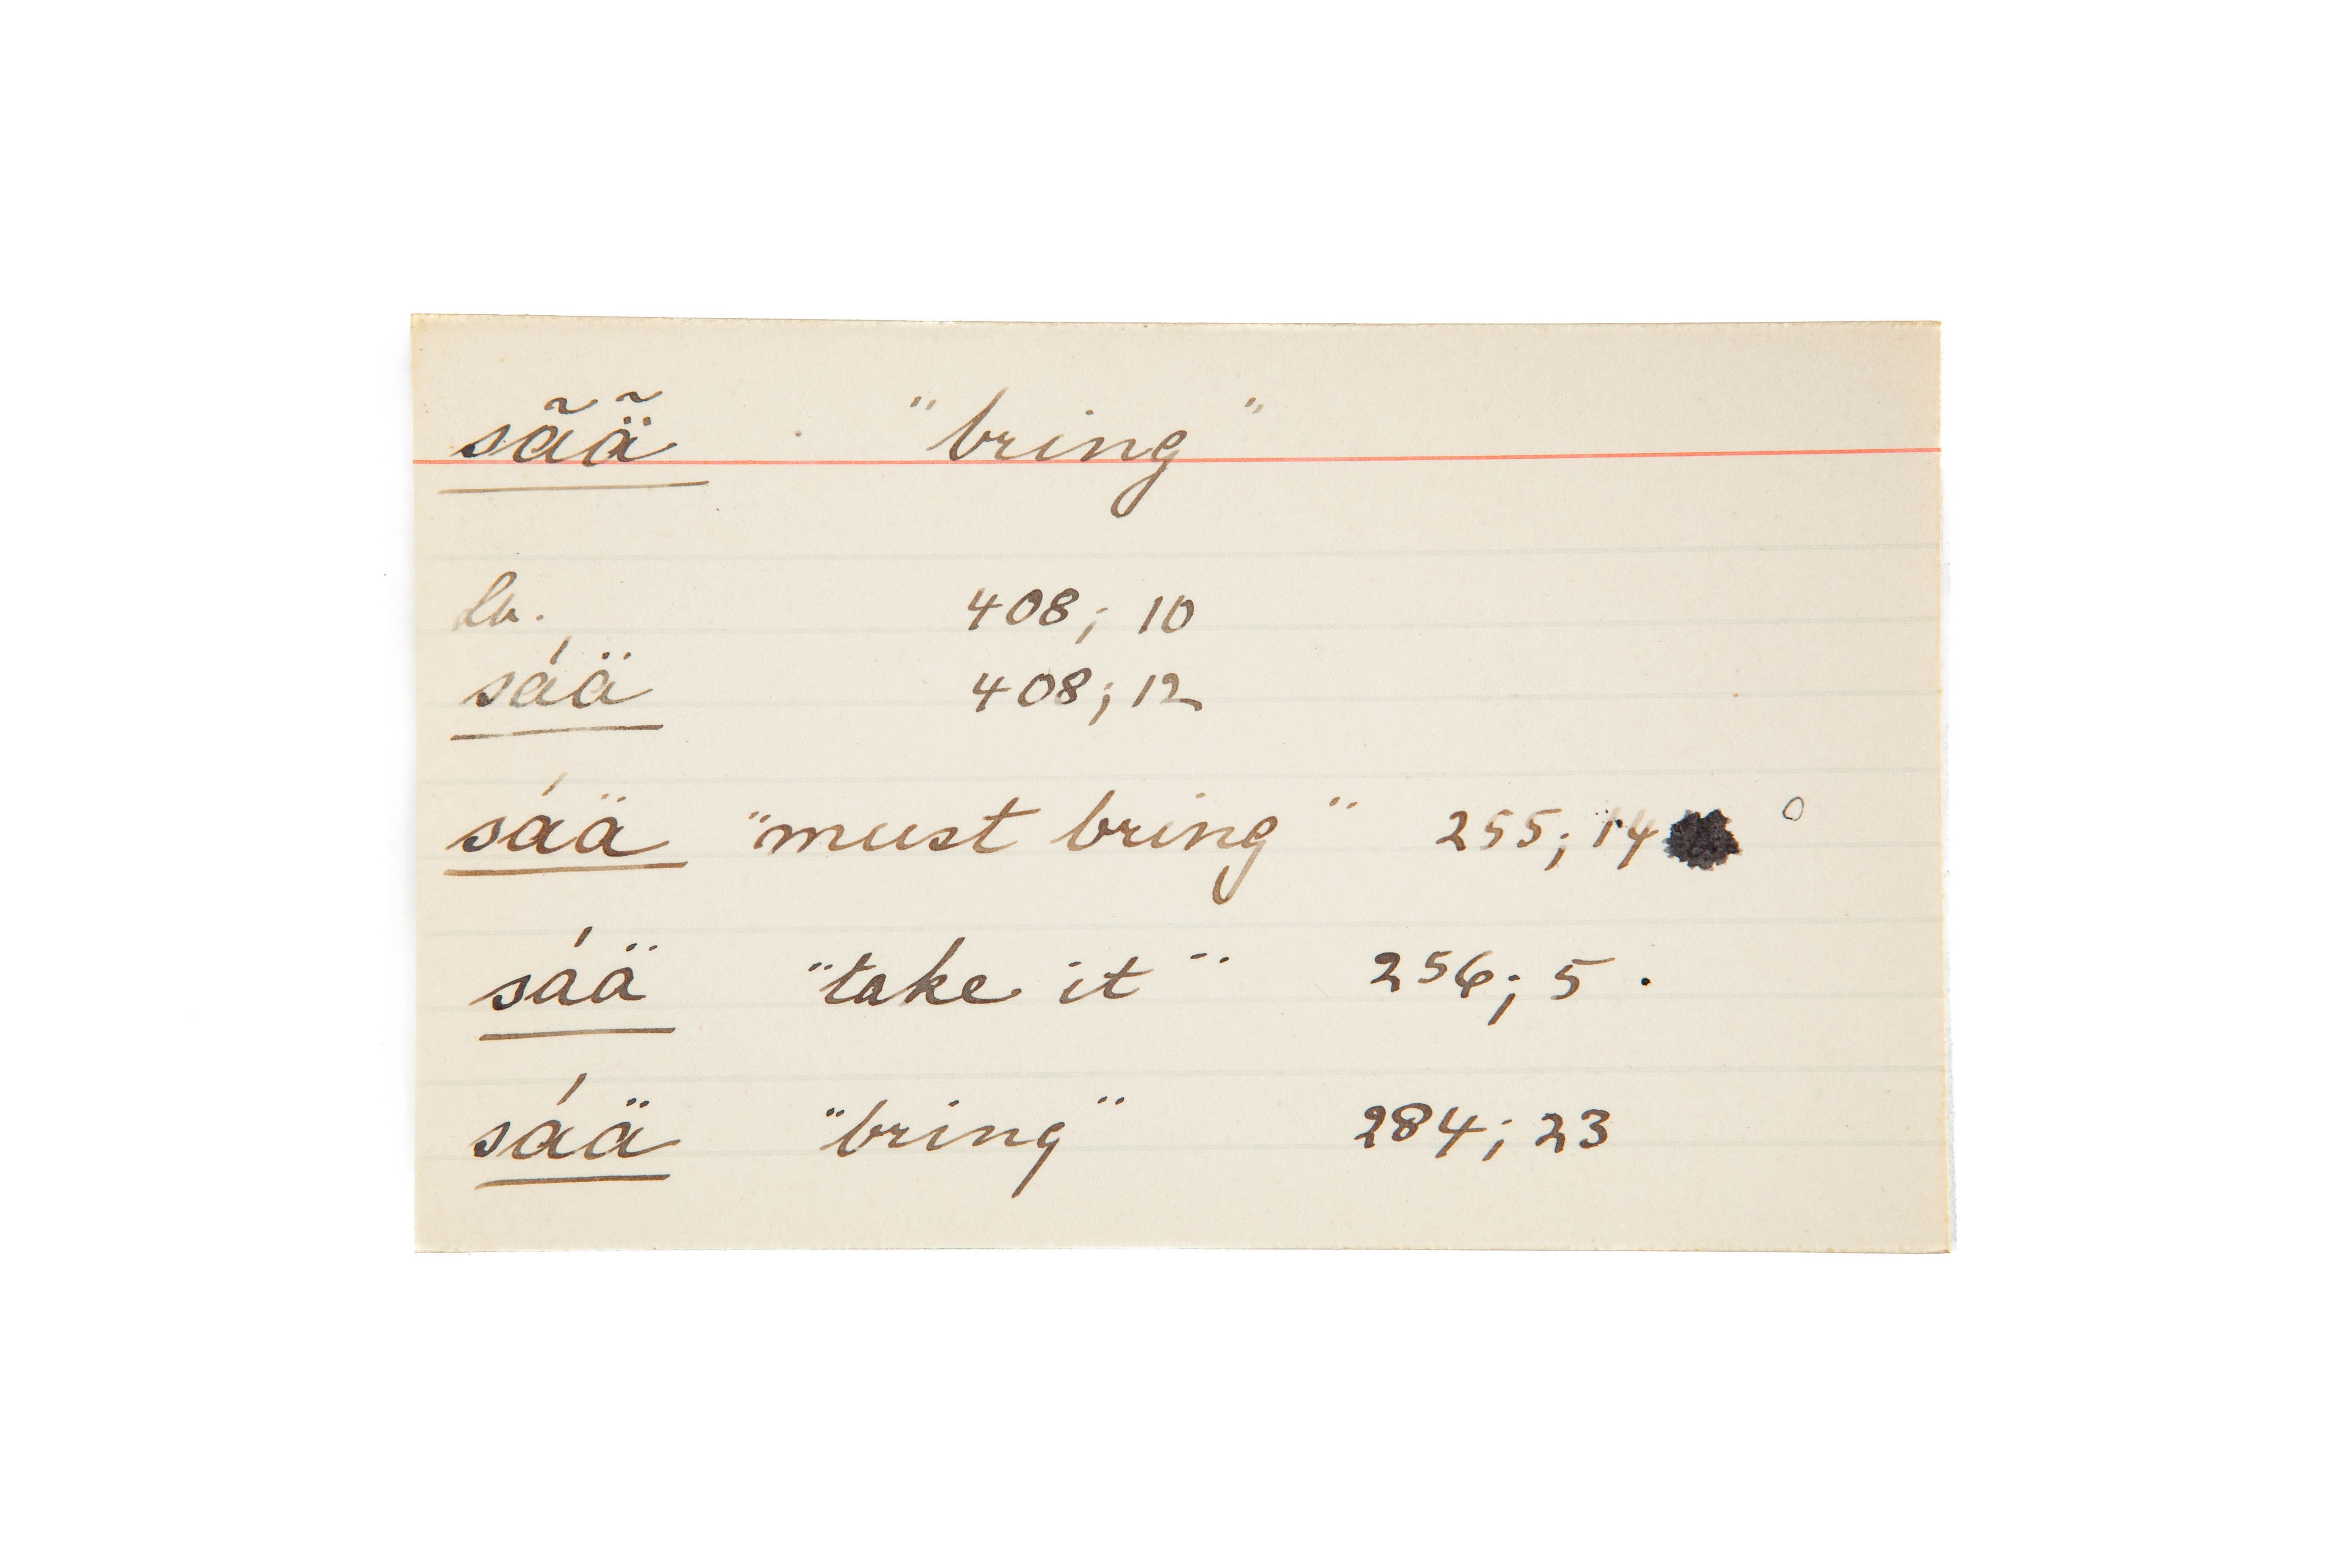 sãä̃ "bring"
408; 10
sáä 408; 12
sáä "must bring" 255; 14
sáä "take it" 256; 5.
sáä "bring" 284; 23